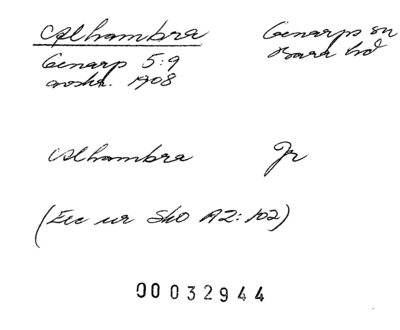 Alhambra Genarps sn
Genarp 5:9 Bara hd
avskr. 1908
Alhambra Jr
(Exc ur SkO A2:102)
00032944